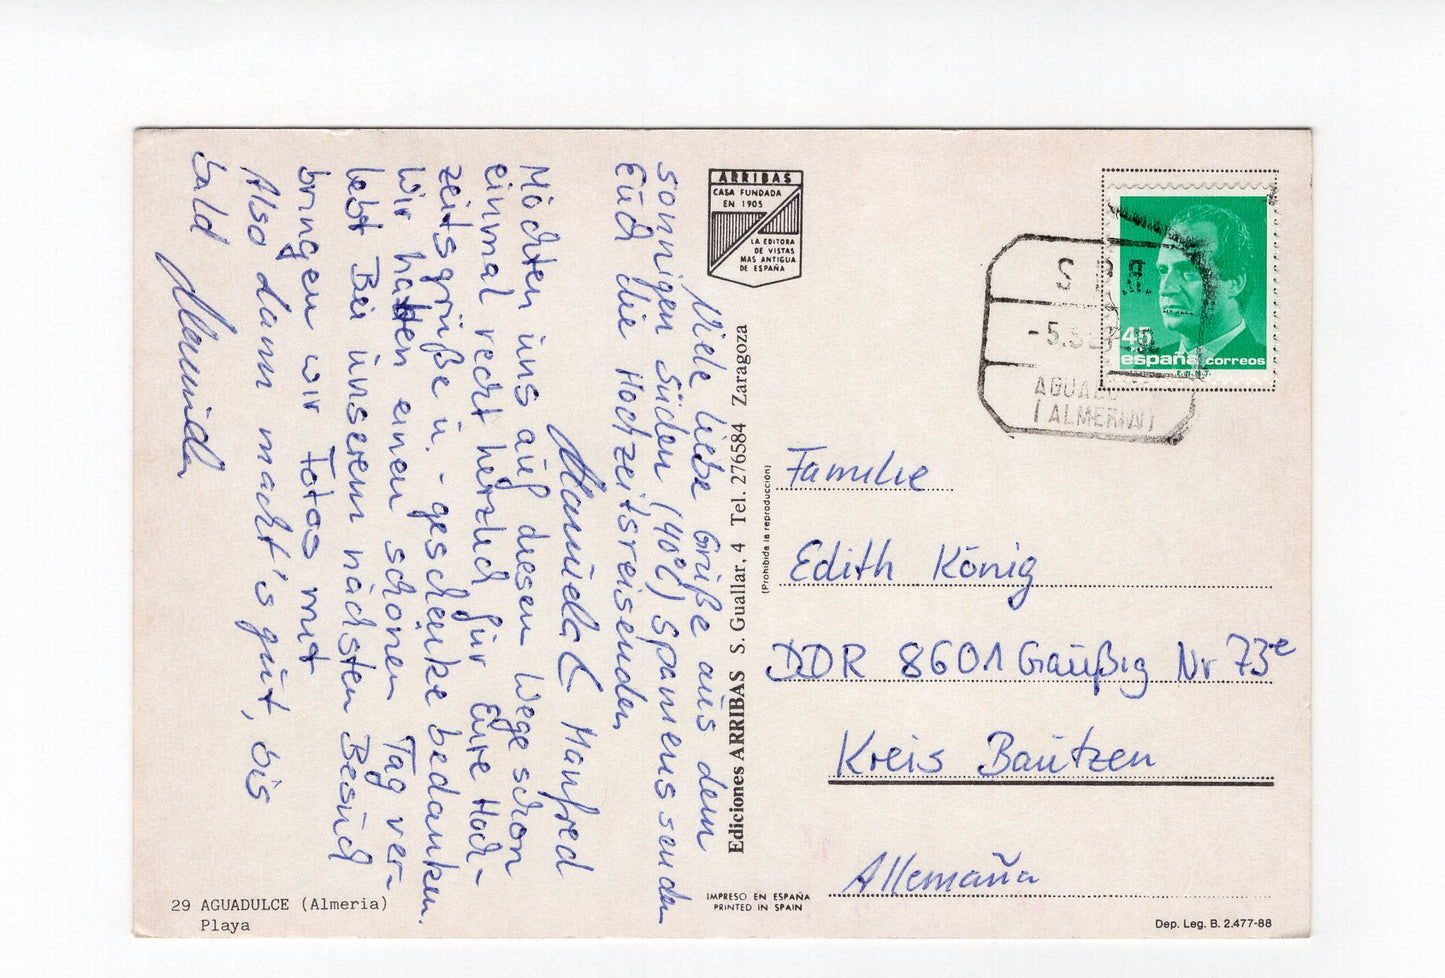 ARRIBAS
CASA FUNDADA
EN 1905
LA EDITORA
DE VISTAS
MAS ANTIGUA
DE ESPAÑA
Viele liebe Grüße aus dem
sonnigen Süden (40°C) Spaniens senden
Euch die Hochzeitsreisenden
Manuela & Manfred
Möchten uns auf diesem Wege schon
einmal recht herzlich für Eure Hoch-
zeitsgrüße u. -geschenke bedanken.
Wir hatten einen schönen Tag ver-
lebt. Bei unserem nächsten Besuch
bringen wir Fotos mit
Also dann macht's gut, bis
bald Manuela
29 AGUADULCE (Almeria)
Playa
Ediciones ARRIBAS S. Guallar, 4 Tel. 276584 Zaragoza
(Prohibida la reproducción)
IMPRESO EN ESPAÑA
PRINTED IN SPAIN
45
españa correos
F.N.M.T.
S.P.R.
-5.SEP
(ALMERIA)
Familie
Edith König
DDR 8601 Gaußig Nr 73e
Kreis Bautzen
Allemaña
Dep. Leg. B. 2.477-88